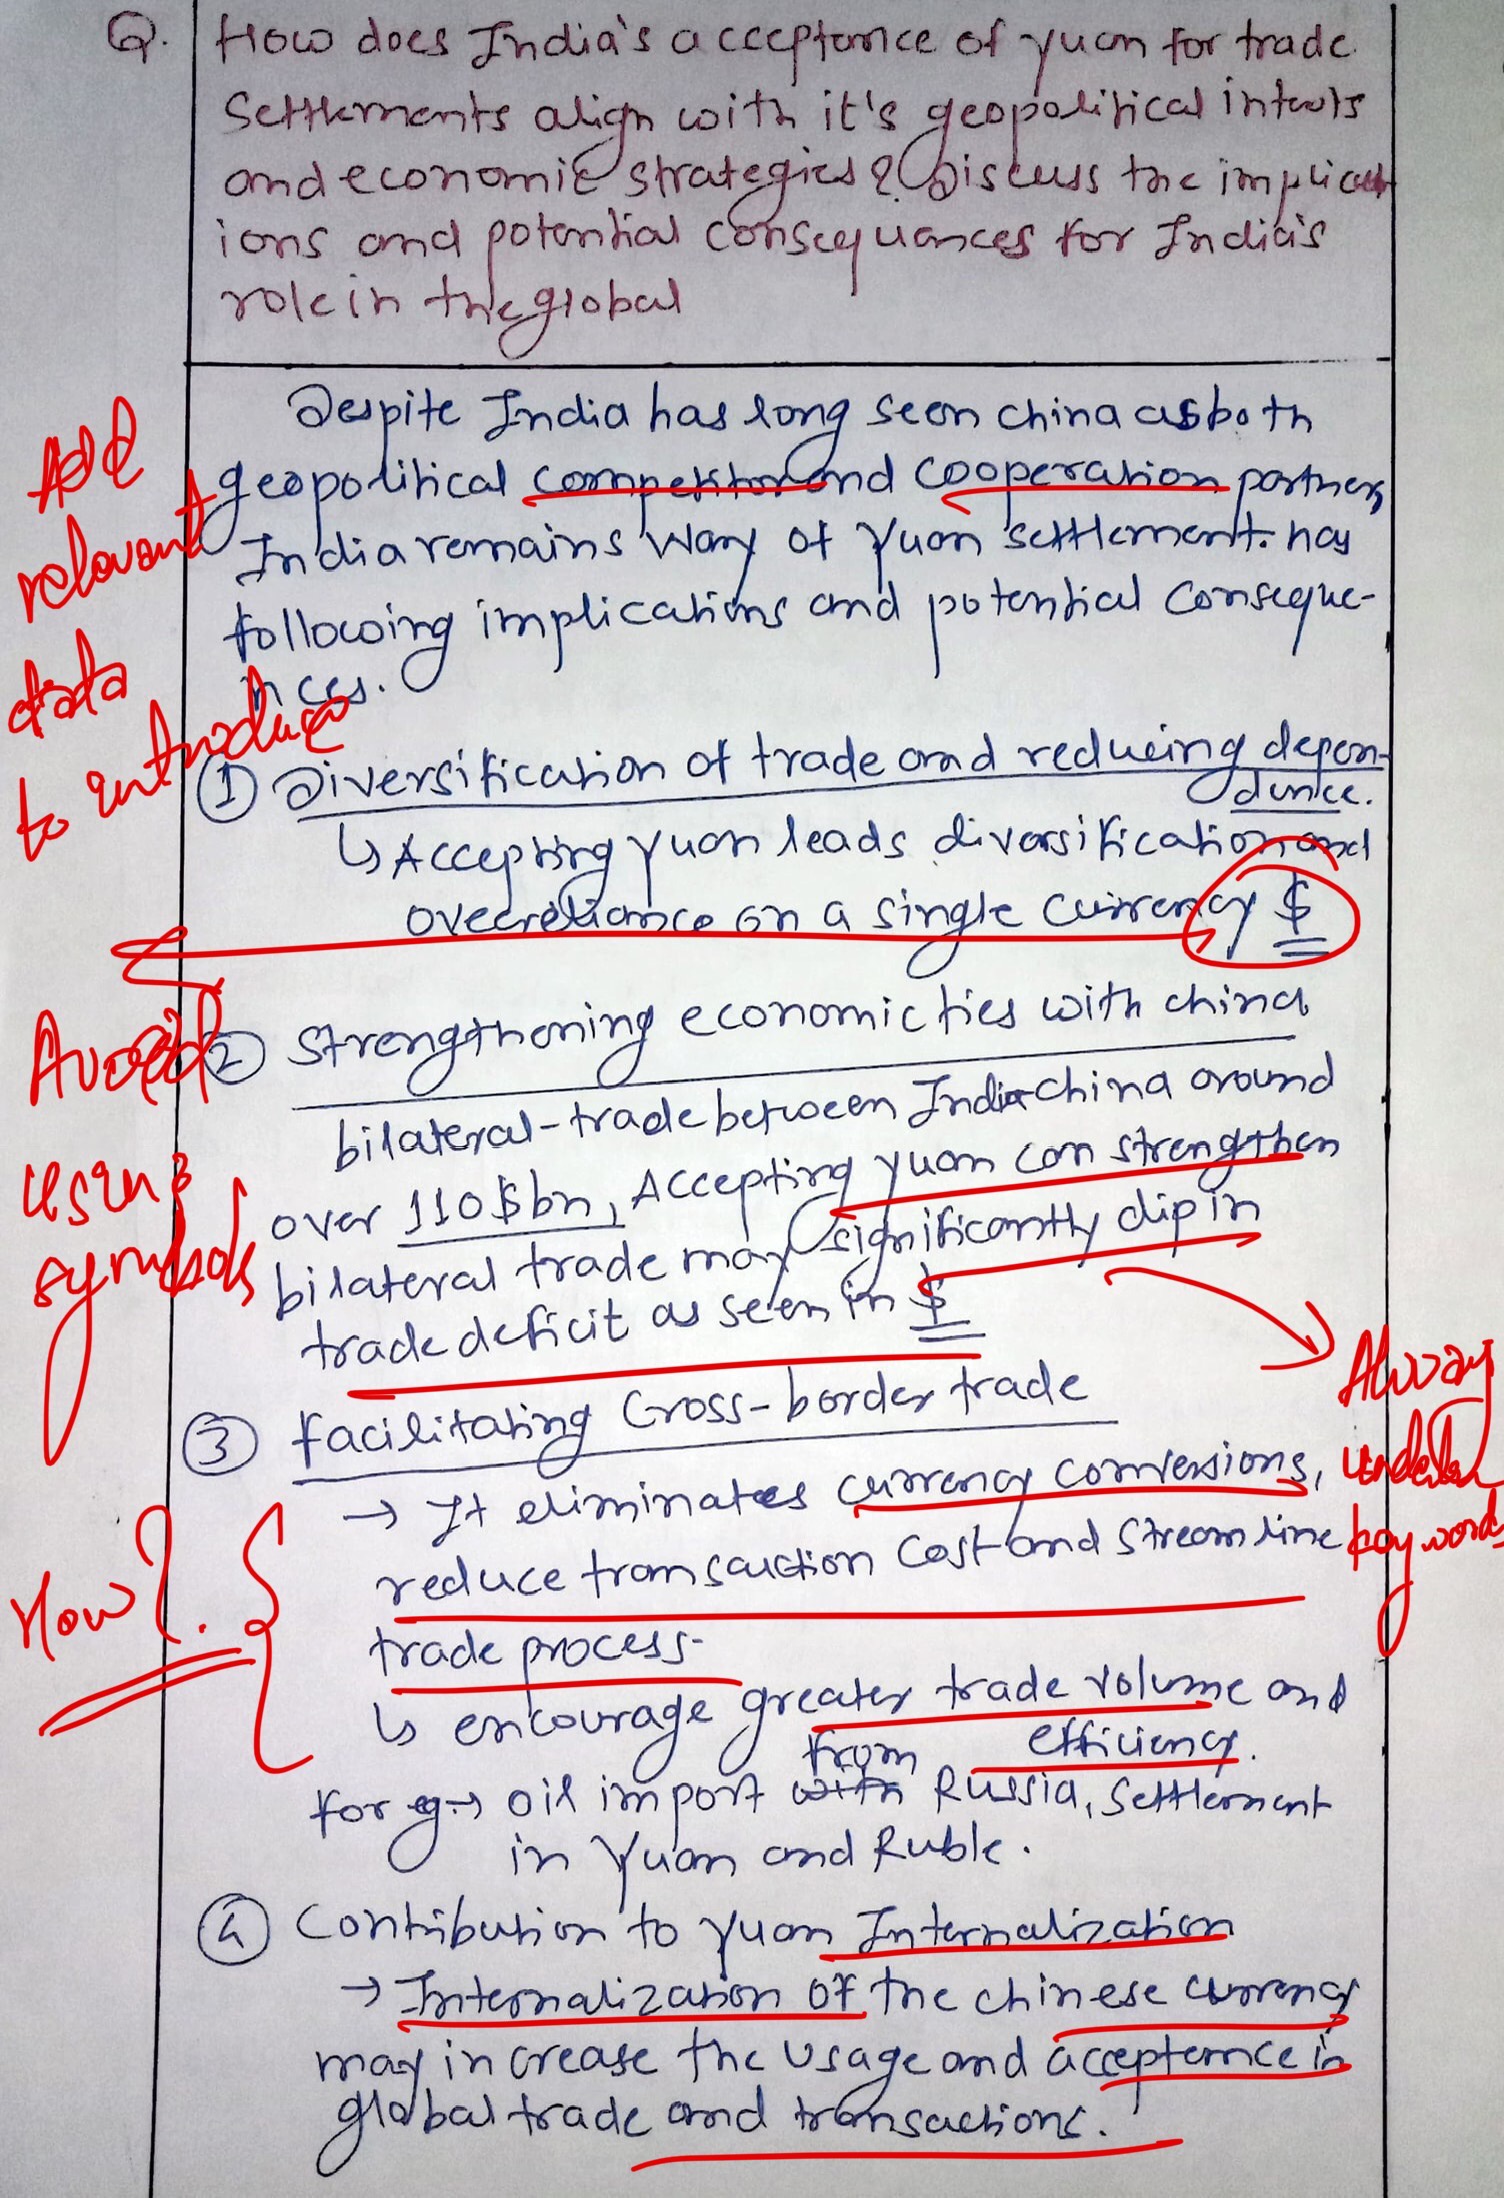 Q. How does India's acceptance of yuan for trade
Settlements align with it's geopolitical interests
and economic strategies? Discuss the implicat
ions and potential consequences for India's
role in the global
Despite India has long seen china as both
geopolitical competitor and cooperation partners,
India remains wary of Yuan settlement. has
following implications and potential conseque-
nces.
Add
relevant
data
to introduce
① Diversification of trade and reducing depen-
dence.
↳ Accepting yuan leads diversification and
overreliance on a single currency $
Avoid
using
symbols
② Strengthening economic ties with china
bilateral-trade between India-China around
over 110$bn, Accepting yuan can strengthen
bilateral trade may significantly dip in
trade deficit as seen in $
Always
underline
keywords
③ facilitating Cross-border trade
→ It eliminates currency conversions,
reduce transaction cost and streamline
trade process-
↳ encourage greater trade volume and
efficiency.
How?
for eg→ oil import from Russia, Settlement
in Yuan and Ruble.
④ Contribution to yuan Internalization
→ Internalization of the chinese currency
may increase the usage and acceptance in
global trade and transactions.